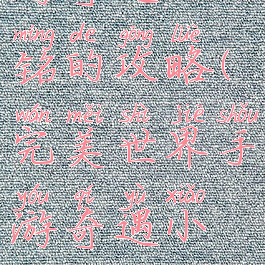 míng de gōng lüè
铭的攻略(
wán měi shì jiè shǒu
完美世界手
yóu qí yù xiǎo
游奇遇小